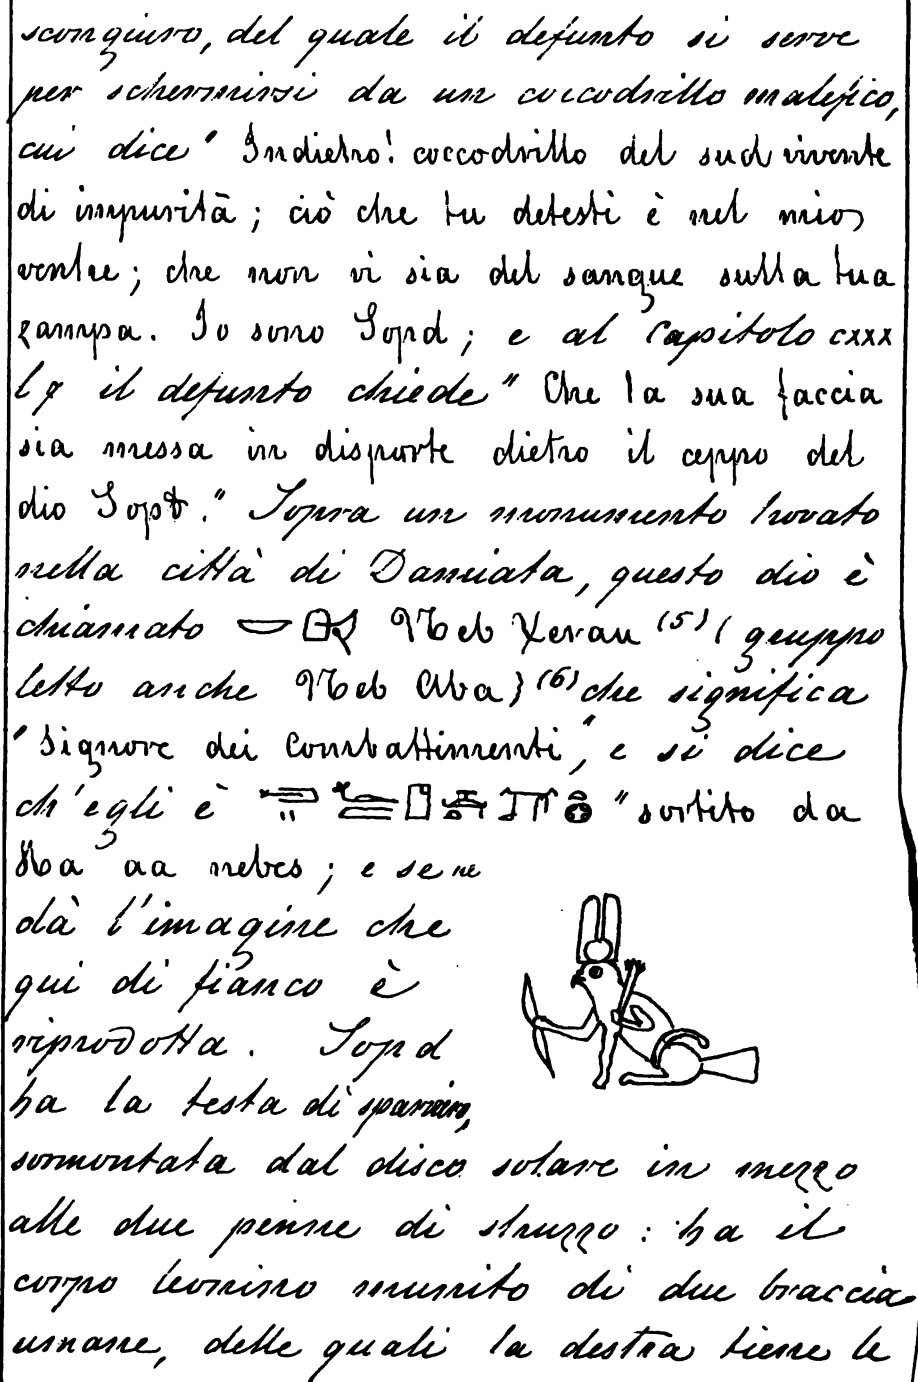 scongiuro, del quale il defunto si serve
per schermirsi da un coccodrillo malefico,
cui dice " Indietro! coccodrillo del sud vivente
di impurità; ciò che tu detesti è nel mio
ventre; che non vi sia del sangue sulla tua
zampa. Io sono Sopd; e al Capitolo cxxx
il defunto chiede " Che la sua faccia
sia messa in disparte dietro il ceppo del
dio Sopt." Sopra un monumento trovato
nella città di Damiata, questo dio è
chiamato Neb Xerau (5) ( gruppo
letto anche Neb Aba) (6) che significa
" Signore dei Combattimenti", e si dice
ch'egli è " sortito da
Ha aa nebes; e se ne
dà l'imagine che
qui di fianco è
riprodotta. Sopd
ha la testa di sparviero,
sormontata dal disco solare in mezzo
alle due penne di struzzo: ha il
corpo leonino munito di due braccia
umane, delle quali la destra tiene le